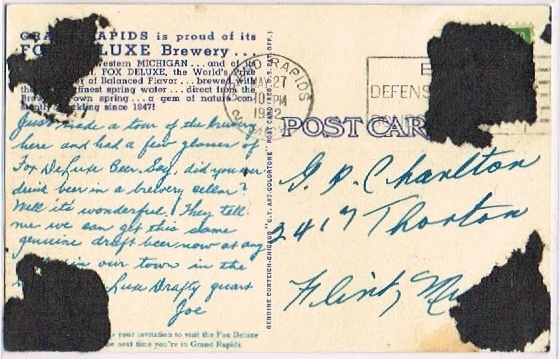 GRAND RAPIDS is proud of its
FOX DELUXE Brewery...
Western MICHIGAN...and of its
FOX DELUXE, the World's Prize
of Balanced Flavor...brewed with
finest spring water...direct from the
own spring...a gem of nature con-
since 1847!
Just made a tour of the brewery
here and had a few glasses of
Fox DeLuxe Beer. Say, did you ever
drink beer in a brewery cellar?
Well it's wonderful. They tell
me we can get this same
genuine draft beer now at any
in our town in the
Luxe Drafty quart
Joe
your invitation to visit the Fox Deluxe
next time you're in Grand Rapids.
GENUINE CURTEICH-CHICAGO "C.T. ART-COLORTONE" POST CARD (REG. U.S. PAT. OFF.)
GRAND RAPIDS
MAY 27
PM
DEFENS
POST CAR
G. P. Charlton
2417 Thorton
Flint,